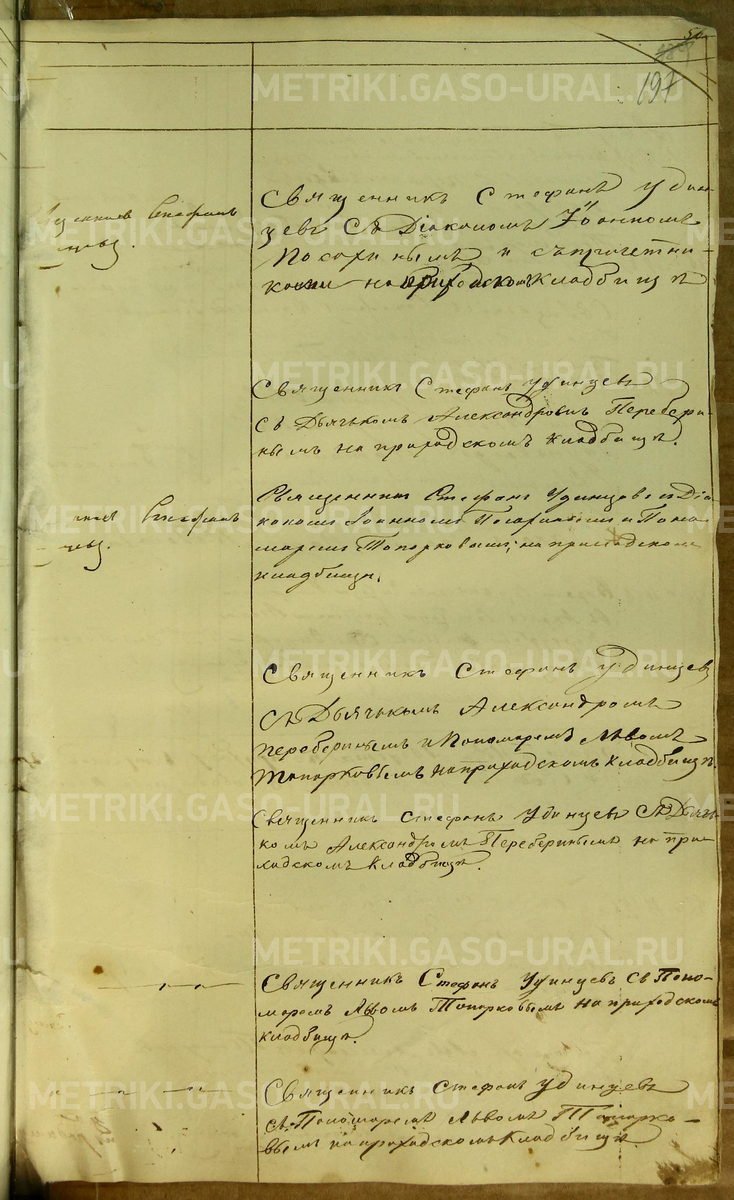 197
Священникъ Стефанъ Удин-
цевъ Съ Діакономъ Іоанномъ
и съ причетни-
ками на приходскомъ кладбищѣ
Стефанъ
Священникъ Стефанъ Удинцевъ
съ Дьячькомъ Александромъ Перебери-
нымъ на приходскомъ кладбищѣ.
Священникъ Стефанъ Удинцевъ и Діа-
кономъ Іоанномъ и Поно-
маремъ Топорковымъ, на приходскомъ
кладбищѣ.
Стефанъ
Священникъ Стефанъ Удинцевъ
съ Дьячькомъ Александромъ
Переберинымъ и Пономаремъ Львомъ
Топорковымъ на приходскомъ кладбищѣ.
Священникъ Стефанъ Удинцевъ съ Дьячь-
комъ Александромъ Переберинымъ на при-
ходскомъ кладбищѣ.
Священникъ Стефанъ Удинцевъ съ Поно-
маремъ Львомъ Топорковымъ на приходскомъ
кладбищѣ.
Священникъ Стефанъ Удинцевъ
съ Пономаремъ Львомъ Топорко-
вымъ на приходскомъ кладбищѣ.
METRIKI.GASO-URAL.RU